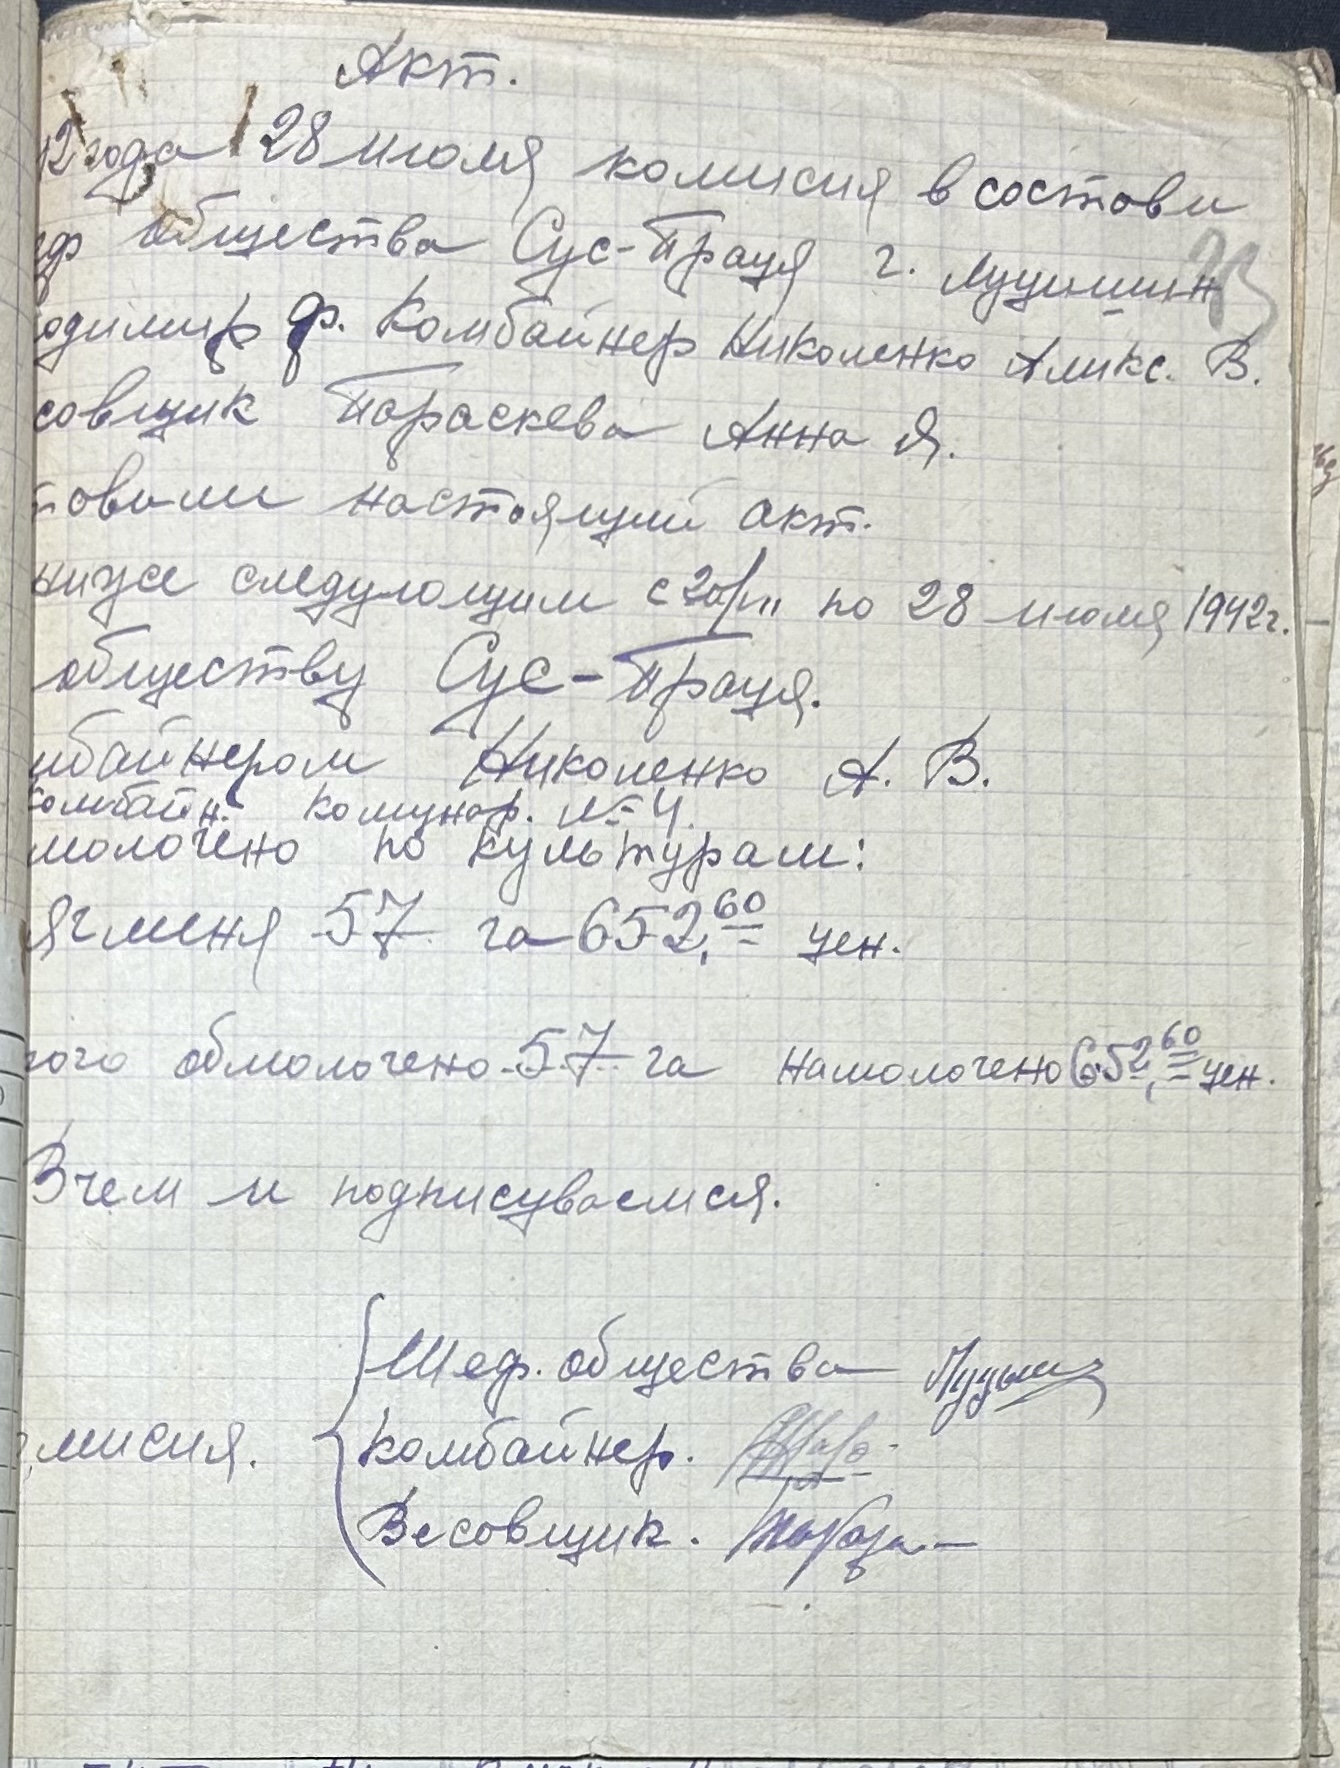 Акт.
42 года 28 июля комисия в состави
еф общества Сус-Праця г. Луцишин
73
одимир Ф. Комбайнер Николенко Аликс. В.
совщик Параскева Анна Я.
товили настоящий акт.
ниже следующим с 20/VII по 28 июля 1942г.
обществу Сус-Праця.
мбайнером Николенко А. В.
комбайн. комунар. № 4.
молочено по культурам:
ячменя 57 га 652,60 цен.
того обмолочено 57 га намолочено 652,60 цен.
В чем и подписуваемся.
Шеф. общества
мисия. Комбайнер.
Весовщик.